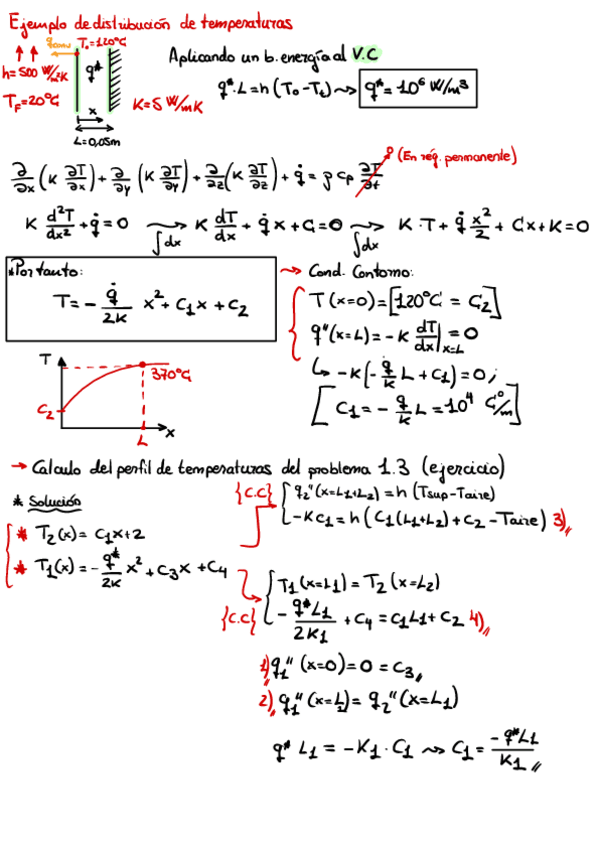 Ejemplo de distribución de temperaturas
q conv T₀=120ºC
h=500 W/m²K
q*
T_F=20ºC
K=5 W/mK
x
L=0,05m
Aplicando un b. energía al V.C
q*·L=h(T₀-T_f)⇝ q*=10⁶ W/m³
∂/∂x (K ∂T/∂x)+∂/∂y (K ∂T/∂y)+∂/∂z (K ∂T/∂z)+q̇ = ρ cp ∂T/∂t 0 (En rég. permanente)
K d²T/dx² + q̇=0 ⇝ ∫dx K dT/dx + q̇ x+C₁=0 ⇝ ∫dx K·T+q̇ x²/2 + C₁x+K=0
*Por tanto:
T=- q̇/2K x²+C₁x+C₂
→ Cond. Contorno:
T(x=0)=[120ºC = C₂]
q''(x=L)=-K dT/dx|x=L=0
↳ -K(-q̇/K L+C₁)=0;
[C₁=-q̇/K L=10⁴ Cº/m]
T
370ºC
C₂
L
x
→ Calculo del perfil de temperaturas del problema 1.3 (ejercicio)
* Solución
* T₂(x)=C₁x+2
* T₁(x)=-q*/2K x²+C₃x+C₄
{C.C} q₂''(x=L₁+L₂)=h(Tsup-Taire)
-KC₁=h(C₁(L₁+L₂)+C₂-Taire) 3)
{C.C} T₁(x=L₁)=T₂(x=L₂)
-q*L₁/2K₁ +C₄=C₁L₁+C₂ 4)
1) q₁''(x=0)=0=C₃
2) q₁''(x=L₁)=q₂''(x=L₁)
q* L₁=-K₁·C₁ ⇝ C₁=-q*L₁/K₁